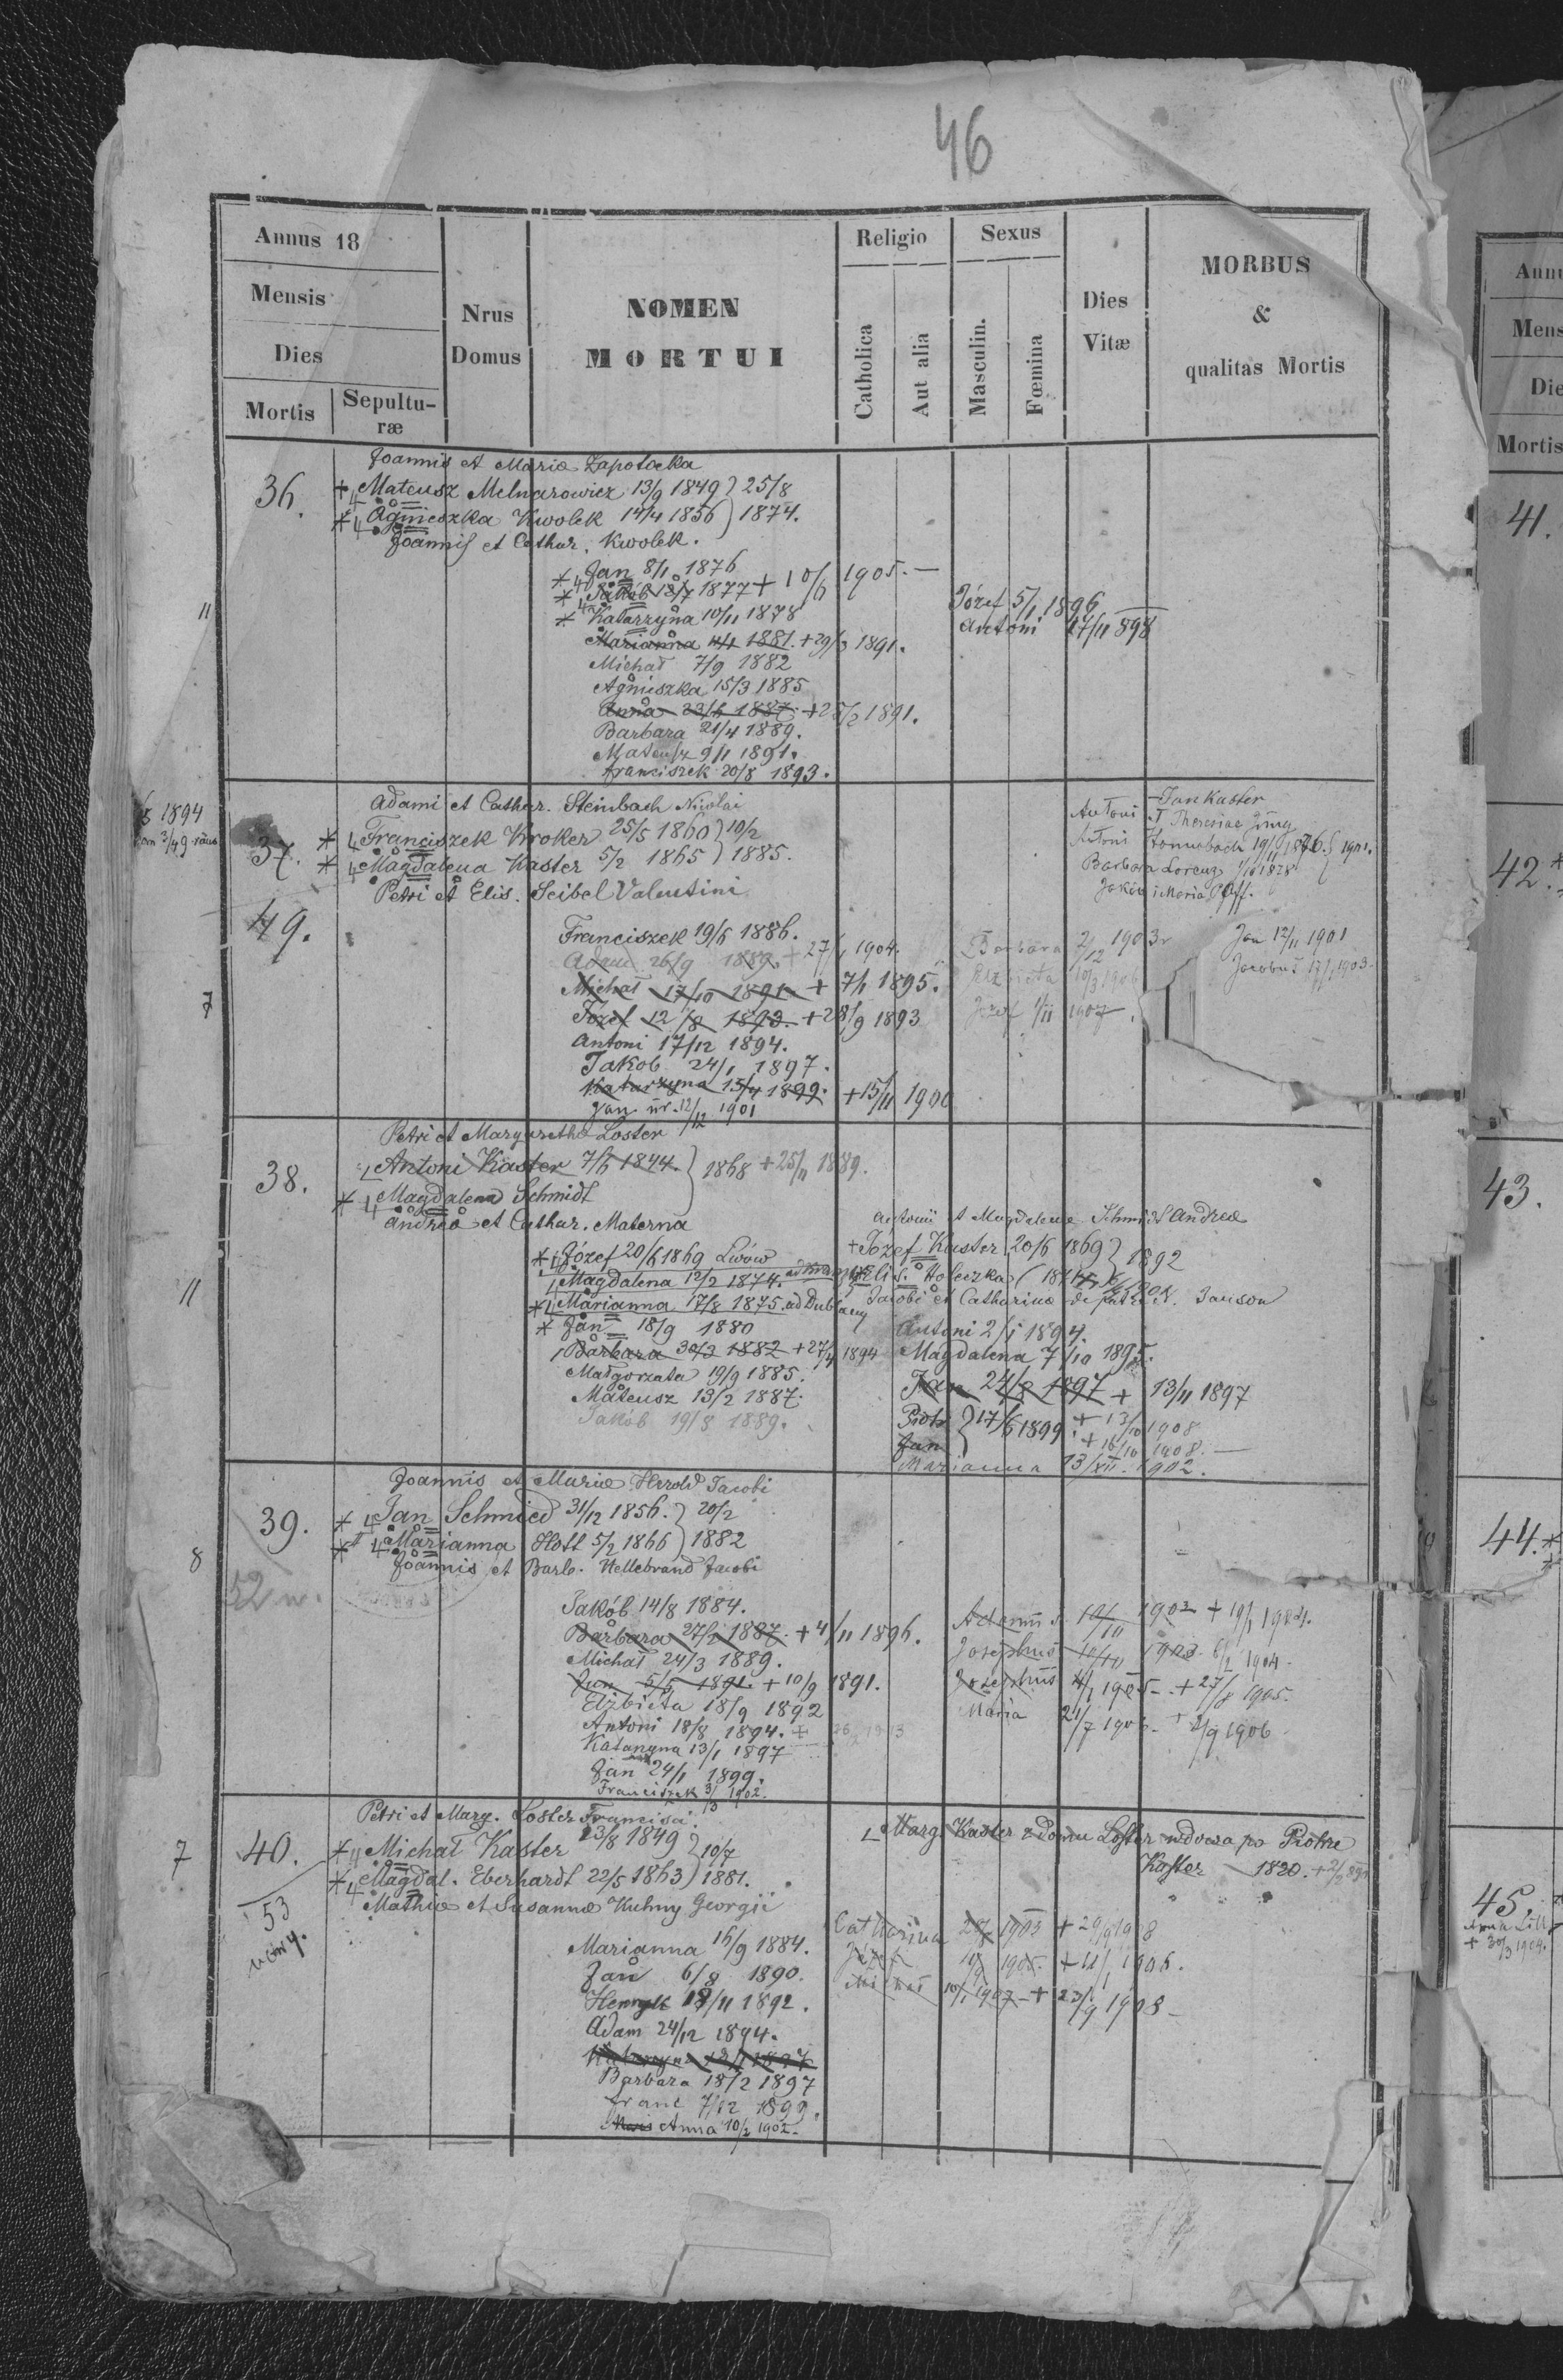 46
Annus 18
Mensis
Dies
Mortis
Sepultu-
ræ
Nrus
Domus
NOMEN
MORTUI
Religio
Catholica
Aut alia
Sexus
Masculin.
Fœmina
Dies
Vitæ
MORBUS
&
qualitas Mortis
36.
Joannis et Mariæ Zapotocka
Mateusz Melnarowicz 13/9 1849 } 25/8
Agnieszka Kwolek 14/4 1856 } 1874.
Joannis et Cathar. Kwolek.
Jan 8/1 1876
Jakób 18/7 1877 + 10/6 1905. —
Katarzyna 10/11 1878
Marianna 1881. + 29/3 1891.
Michał 7/9 1882
Agnieszka 15/3 1885
Anna 23/6 1887. + 25/2 1891.
Barbara 21/4 1889.
Mateusz 9/11 1891.
Franciszek 20/8 1893.
Józef 5/1 1896
Antoni 17/11 898
11
1894
37.
49.
7
Adami et Cathar. Steinbach Nicolai
Franciszek Kroker 25/5 1860 } 10/2
Magdalena Kaster 5/2 1865 } 1885.
Petri et Elis. Seibel Valentini
Franciszek 19/6 1886.
Adam 26/9 1889. + 27/1 1904.
Michał 17/10 1891 + 7/1 1895.
Józef 12/8 1893. + 28/9 1893
Antoni 17/12 1894.
Jakob 24/1 1897.
Katarzyna 15/4 1899. + 15/11 1900
Jan ur. 12/12 1901
Jan Kaster
Antoni et Theresiae Jung
Antoni
Barbara Lorenz
Jakób i Maria Paff.
Barbara 2/12 1903
Elżbieta 10/3 1906
Józef 1/11 1907
Jan 12/11 1901
Jacobus 17/1 1903
38.
11
Petri et Margarethæ Loster
Antoni Kaster 7/6 1844. } 1868 + 25/11 1889.
Magdalena Schmidt
Andreæ et Cathar. Materna
Józef 20/6 1869 Lwów
Magdalena 12/2 1874.
Marianna 17/8 1875. ad Dublany
Jan 18/9 1880
Barbara 30/3 1882 + 27/4 1894
Małgorzata 19/9 1885.
Mateusz 13/2 1887.
Jakób 19/8 1889.
Antonii et Magdalenæ Schmidt Andreæ
Józef Kaster 20/6 1869 } 1892
Elis. Holeczka
Jacobi et Catharinæ Janson
Antoni 2/1 1894.
Magdalena 7/10 1895.
Jan 24/8 1897 + 13/11 1897
Piotr } 17/6 1899. + 13/10 1908
Jan } + 16/10 1908. —
Marianna 13/XII. 1902.
39.
8
52 n.
Joannis et Mariæ Herold Jacobi
Jan Schmied 31/12 1856. } 20/2
Marianna Hott 5/2 1866 } 1882
Joannis et Barb. Hellebrand Jacobi
Jakób 14/8 1884.
Barbara 27/2 1887. + 4/11 1896.
Michał 24/3 1889.
Jan 5/5 1891. + 10/9 1891.
Elżbieta 18/9 1892
Antoni 18/8 1894. +
Katarzyna 13/1 1897
Jan 24/1 1899.
Franciszek 3/3 1902.
Josephus 10/10 1903 6/2 1904
Josephus 4/1 1905 — + 27/8 1905.
Maria 21/7 190 + 2/9 1906
7
40.
53
nowy.
Petri et Marg. Loster Francisci.
Michał Kaster 23/8 1849 } 10/7
Magdal. Eberhardt 22/5 1863 } 1881.
Mathiæ et Susannæ Kuhny Georgii
Marianna 16/9 1884.
Jan 6/8 1890.
Henryk 18/11 1892.
Adam 24/12 1894.
Barbara 18/2 1897
Franc 7/12 1899.
Anna 10/2 1902.
Marg. Kaster z domu Loster wdowa po Piotrze
Kaster 1820.
Catharina 1903 + 29/9 1908
Józef 1905. + 12/1 1906.
Michał 10/1 1907 — + 23/9 1908 —
Mortis
41.
42.
43.
44.
45.